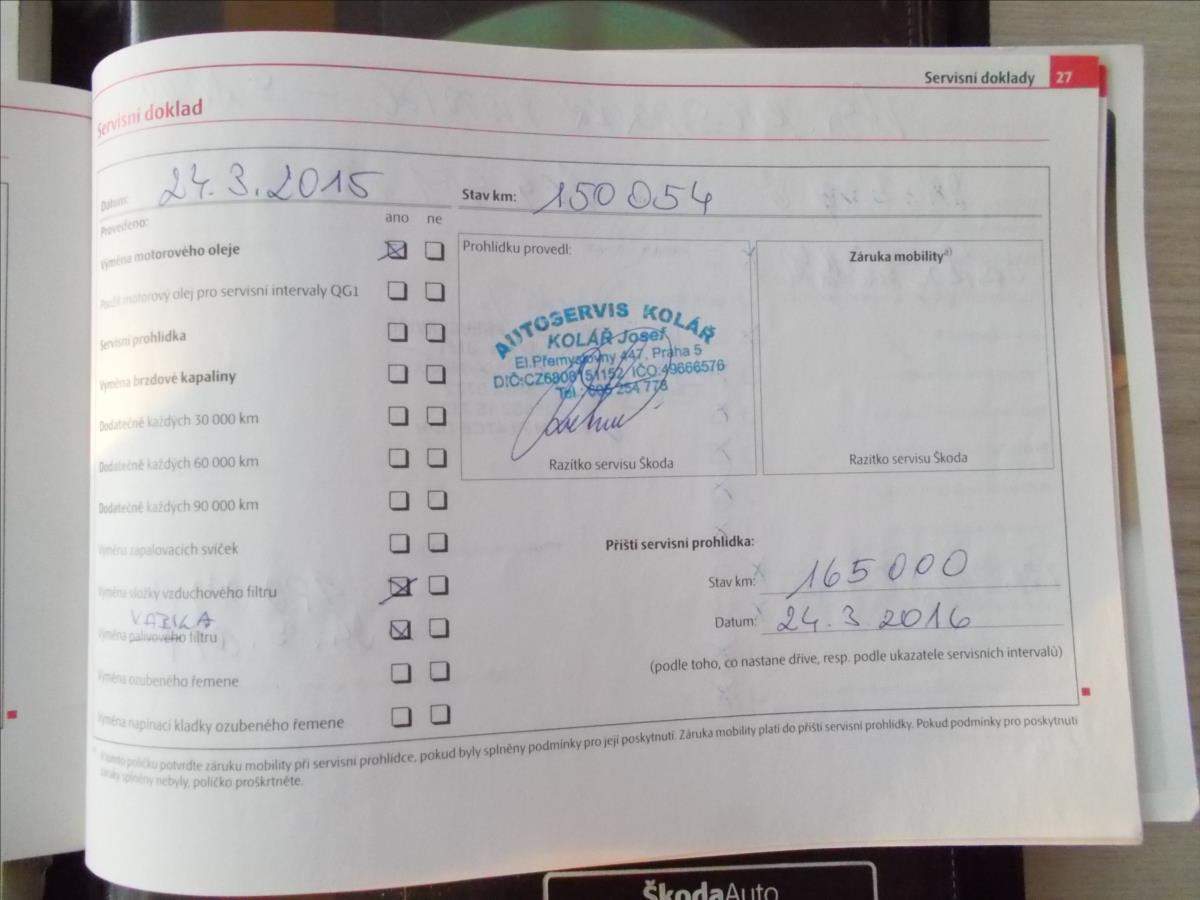 Servisní doklady 27
Servisní doklad
Datum: 24.3.2015
Stav km: 150 054
Provedeno: ano ne
Výměna motorového oleje
Použit motorový olej pro servisní intervaly QG1
Servisní prohlídka
Výměna brzdové kapaliny
Dodatečně každých 30 000 km
Dodatečně každých 60 000 km
Dodatečně každých 90 000 km
Výměna zapalovacích svíček
Výměna vložky vzduchového filtru
Výměna palivového filtru
Výměna ozubeného řemene
Výměna napínací kladky ozubeného řemene
Prohlídku provedl:
AUTOSERVIS KOLÁŘ
KOLÁŘ Josef
El.Přemyslovny 447, Praha 5
DIČ:CZ6808151152 IČO:49666576
Tel.: 254 778
Razítko servisu Škoda
Záruka mobility a)
Razítko servisu Škoda
Příští servisní prohlídka:
Stav km: 165 000
Datum: 24.3.2016
(podle toho, co nastane dříve, resp. podle ukazatele servisních intervalů)
políčko potvrďte záruku mobility při servisní prohlídce, pokud byly splněny podmínky pro její poskytnutí. Záruka mobility platí do příští servisní prohlídky. Pokud podmínky pro poskytnutí
záruky splněny nebyly, políčko proškrtněte.
ŠkodaAuto